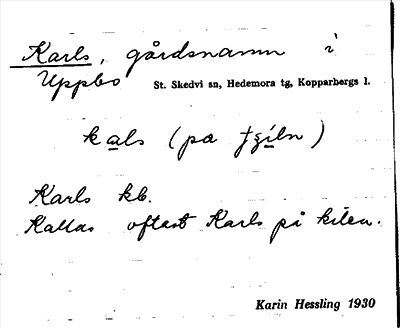 Karls, gårdsnamn i
Uppbo St. Skedvi sn, Hedemora tg, Kopparbergs l.
kals (pa
Karls kb.
Kallas oftast Karls på kilen.
Karin Hessling 1930